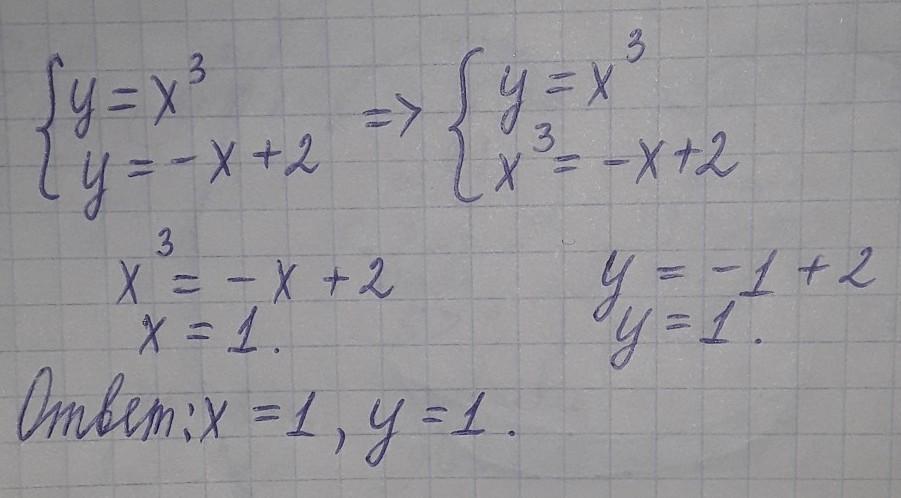 { y = x³ => { y = x³
y = -x + 2 x³ = -x + 2
x³ = -x + 2 y = -1 + 2
x = 1. y = 1.
Ответ: x = 1, y = 1.